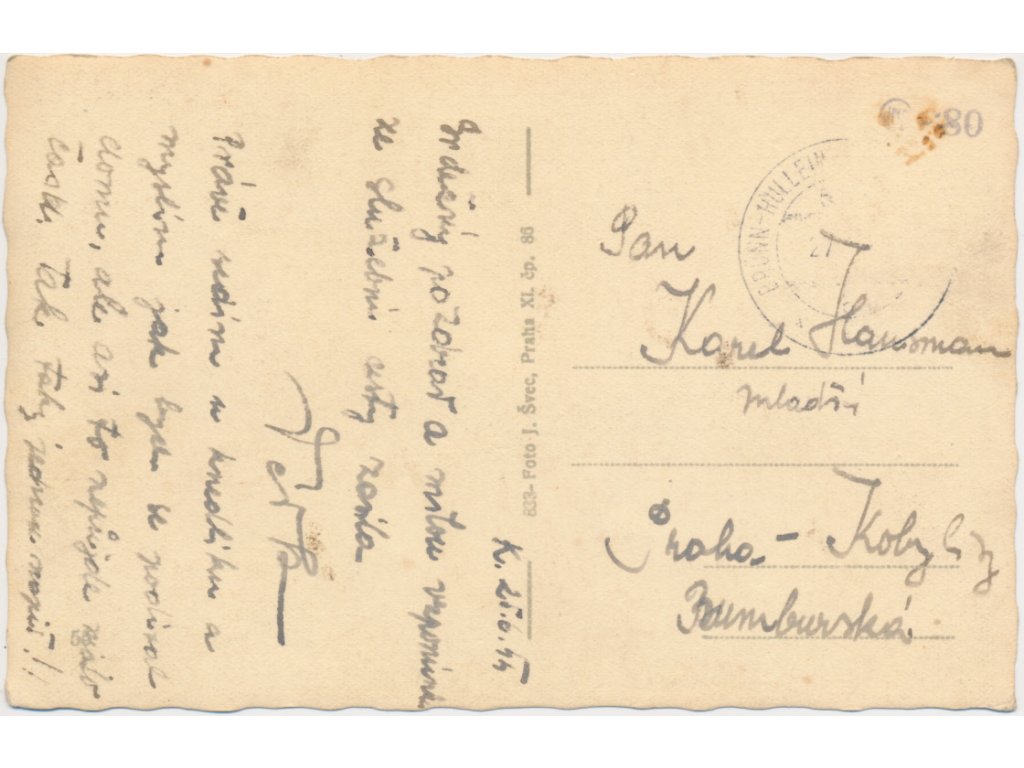 K. 25.6.44
Srdečný pozdrav a milou vzpomínku
ze služební cesty zasílá
Právě sedím u knedlíku a
myslím jak bych se podíval
domů, ale asi to nepůjde málo
času. Tak taky napiš!!
833- Foto J. Švec, Praha XI. čp. 86
80
BRÜNN-HULLEIN
21
Pan
Karel Hausman
mladší
Praha - Kobylisy
Rumburská